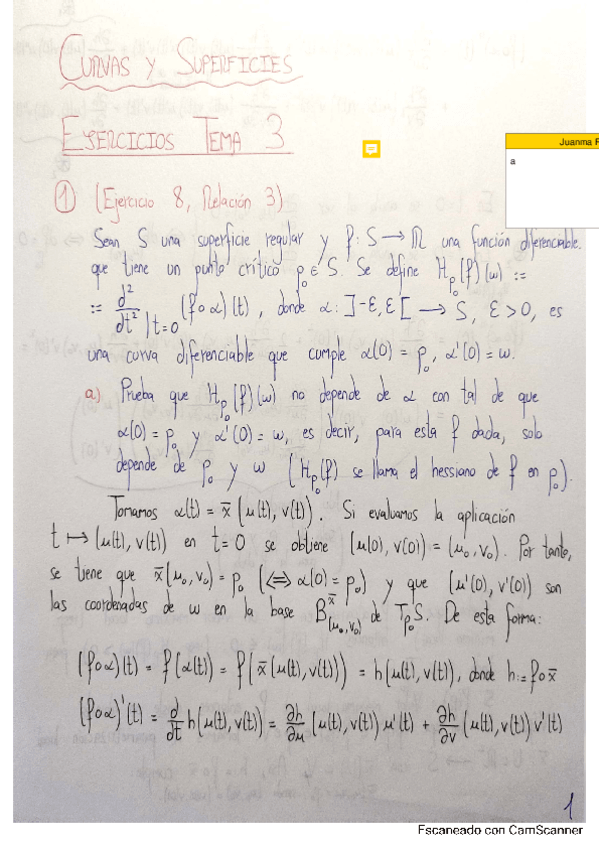 CURVAS Y SUPERFICIES
EJERCICIOS TEMA 3
Juanma
a
① (Ejercicio 8, Relación 3)
Sean S una superficie regular y f: S → ℝ una función diferenciable
que tiene un punto crítico p₀ ∈ S. Se define H_{p₀}(f)(w) :=
:= d²/dt² |t=0 (f∘α)(t), donde α: ]-ε, ε[ → S, ε > 0, es
una curva diferenciable que cumple α(0) = p₀, α'(0) = w.
a) Prueba que H_{p₀}(f)(w) no depende de α con tal de que
α(0) = p₀ y α'(0) = w, es decir, para esta f dada, solo
depende de p₀ y w (H_{p₀}(f) se llama el hessiano de f en p₀).
Tomamos α(t) = x̄(u(t), v(t)). Si evaluamos la aplicación
t ↦ (u(t), v(t)) en t=0 se obtiene (u(0), v(0)) = (u₀, v₀). Por tanto,
se tiene que x̄(u₀, v₀) = p₀ (⟺ α(0) = p₀) y que (u'(0), v'(0)) son
las coordenadas de w en la base B^{x̄}_{(u₀, v₀)} de T_{p₀}S. De esta forma:
(f∘α)(t) = f(α(t)) = f(x̄(u(t), v(t))) = h(u(t), v(t)), donde h := f∘x̄
(f∘α)'(t) = d/dt h(u(t), v(t)) = ∂h/∂u (u(t), v(t)) u'(t) + ∂h/∂v (u(t), v(t)) v'(t)
1
Escaneado con CamScanner